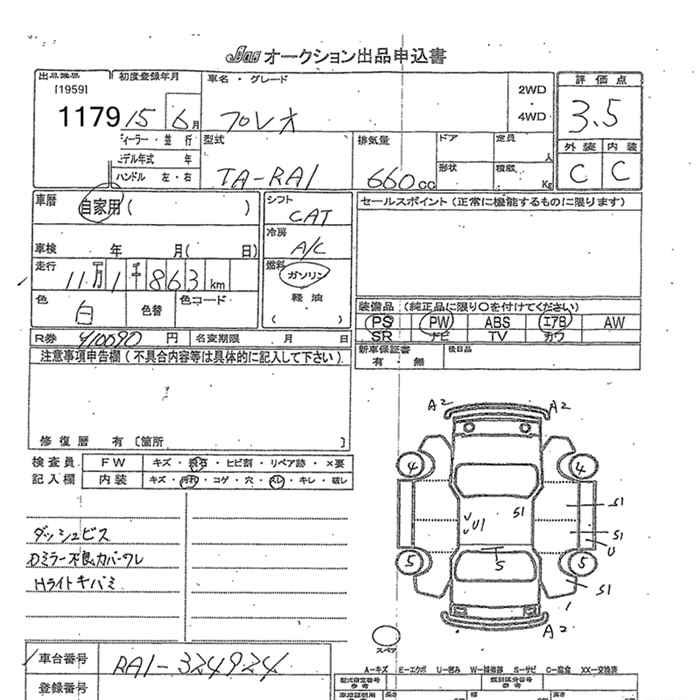 JAA オークション出品申込書
初度登録年月 車名・グレード 評価点
[1959]
1179 15 6月 プレオ 2WD 4WD 3.5
ディーラー・並行 型式 排気量 ドア 定員 人 外装 内装
モデル年式 年 形状 積載 Kg
ハンドル 左・右 TA-RA1 660cc C C
車歴 自家用( ) シフト CAT セールスポイント (正常に機能するものに限ります)
冷房 A/C
車検 年 月( 日)
走行 11万1千863km 燃料 ガソリン
軽油
( )
色 白 色替 色コード
装備品 (純正品に限り○を付けてください)
PS PW ABS エアB AW
SR ナビ TV カワ
R券 円 名変期限 月 日
新車保証書 有・無 後日品
注意事項申告欄 (不具合内容等は具体的に記入して下さい)
修復歴 有 [箇所 ]
検査員 FW キズ・飛石・ヒビ割・リペア跡・×要
記入欄 内装 キズ・汚れ・コゲ・穴・スレ・キレ・破レ
ダッシュビス
Dミラー不良カバーワレ
Hライトキバミ
A2 A2
4 4
S1
U1 S1
S1
U
S
5 5
S1
A2
スペア
A-キズ E-エクボ U-凹み W-補修跡 S-サビ C-腐食 XX-交換済
車台番号 RA1-324924
登録番号
長さ 幅 高さ